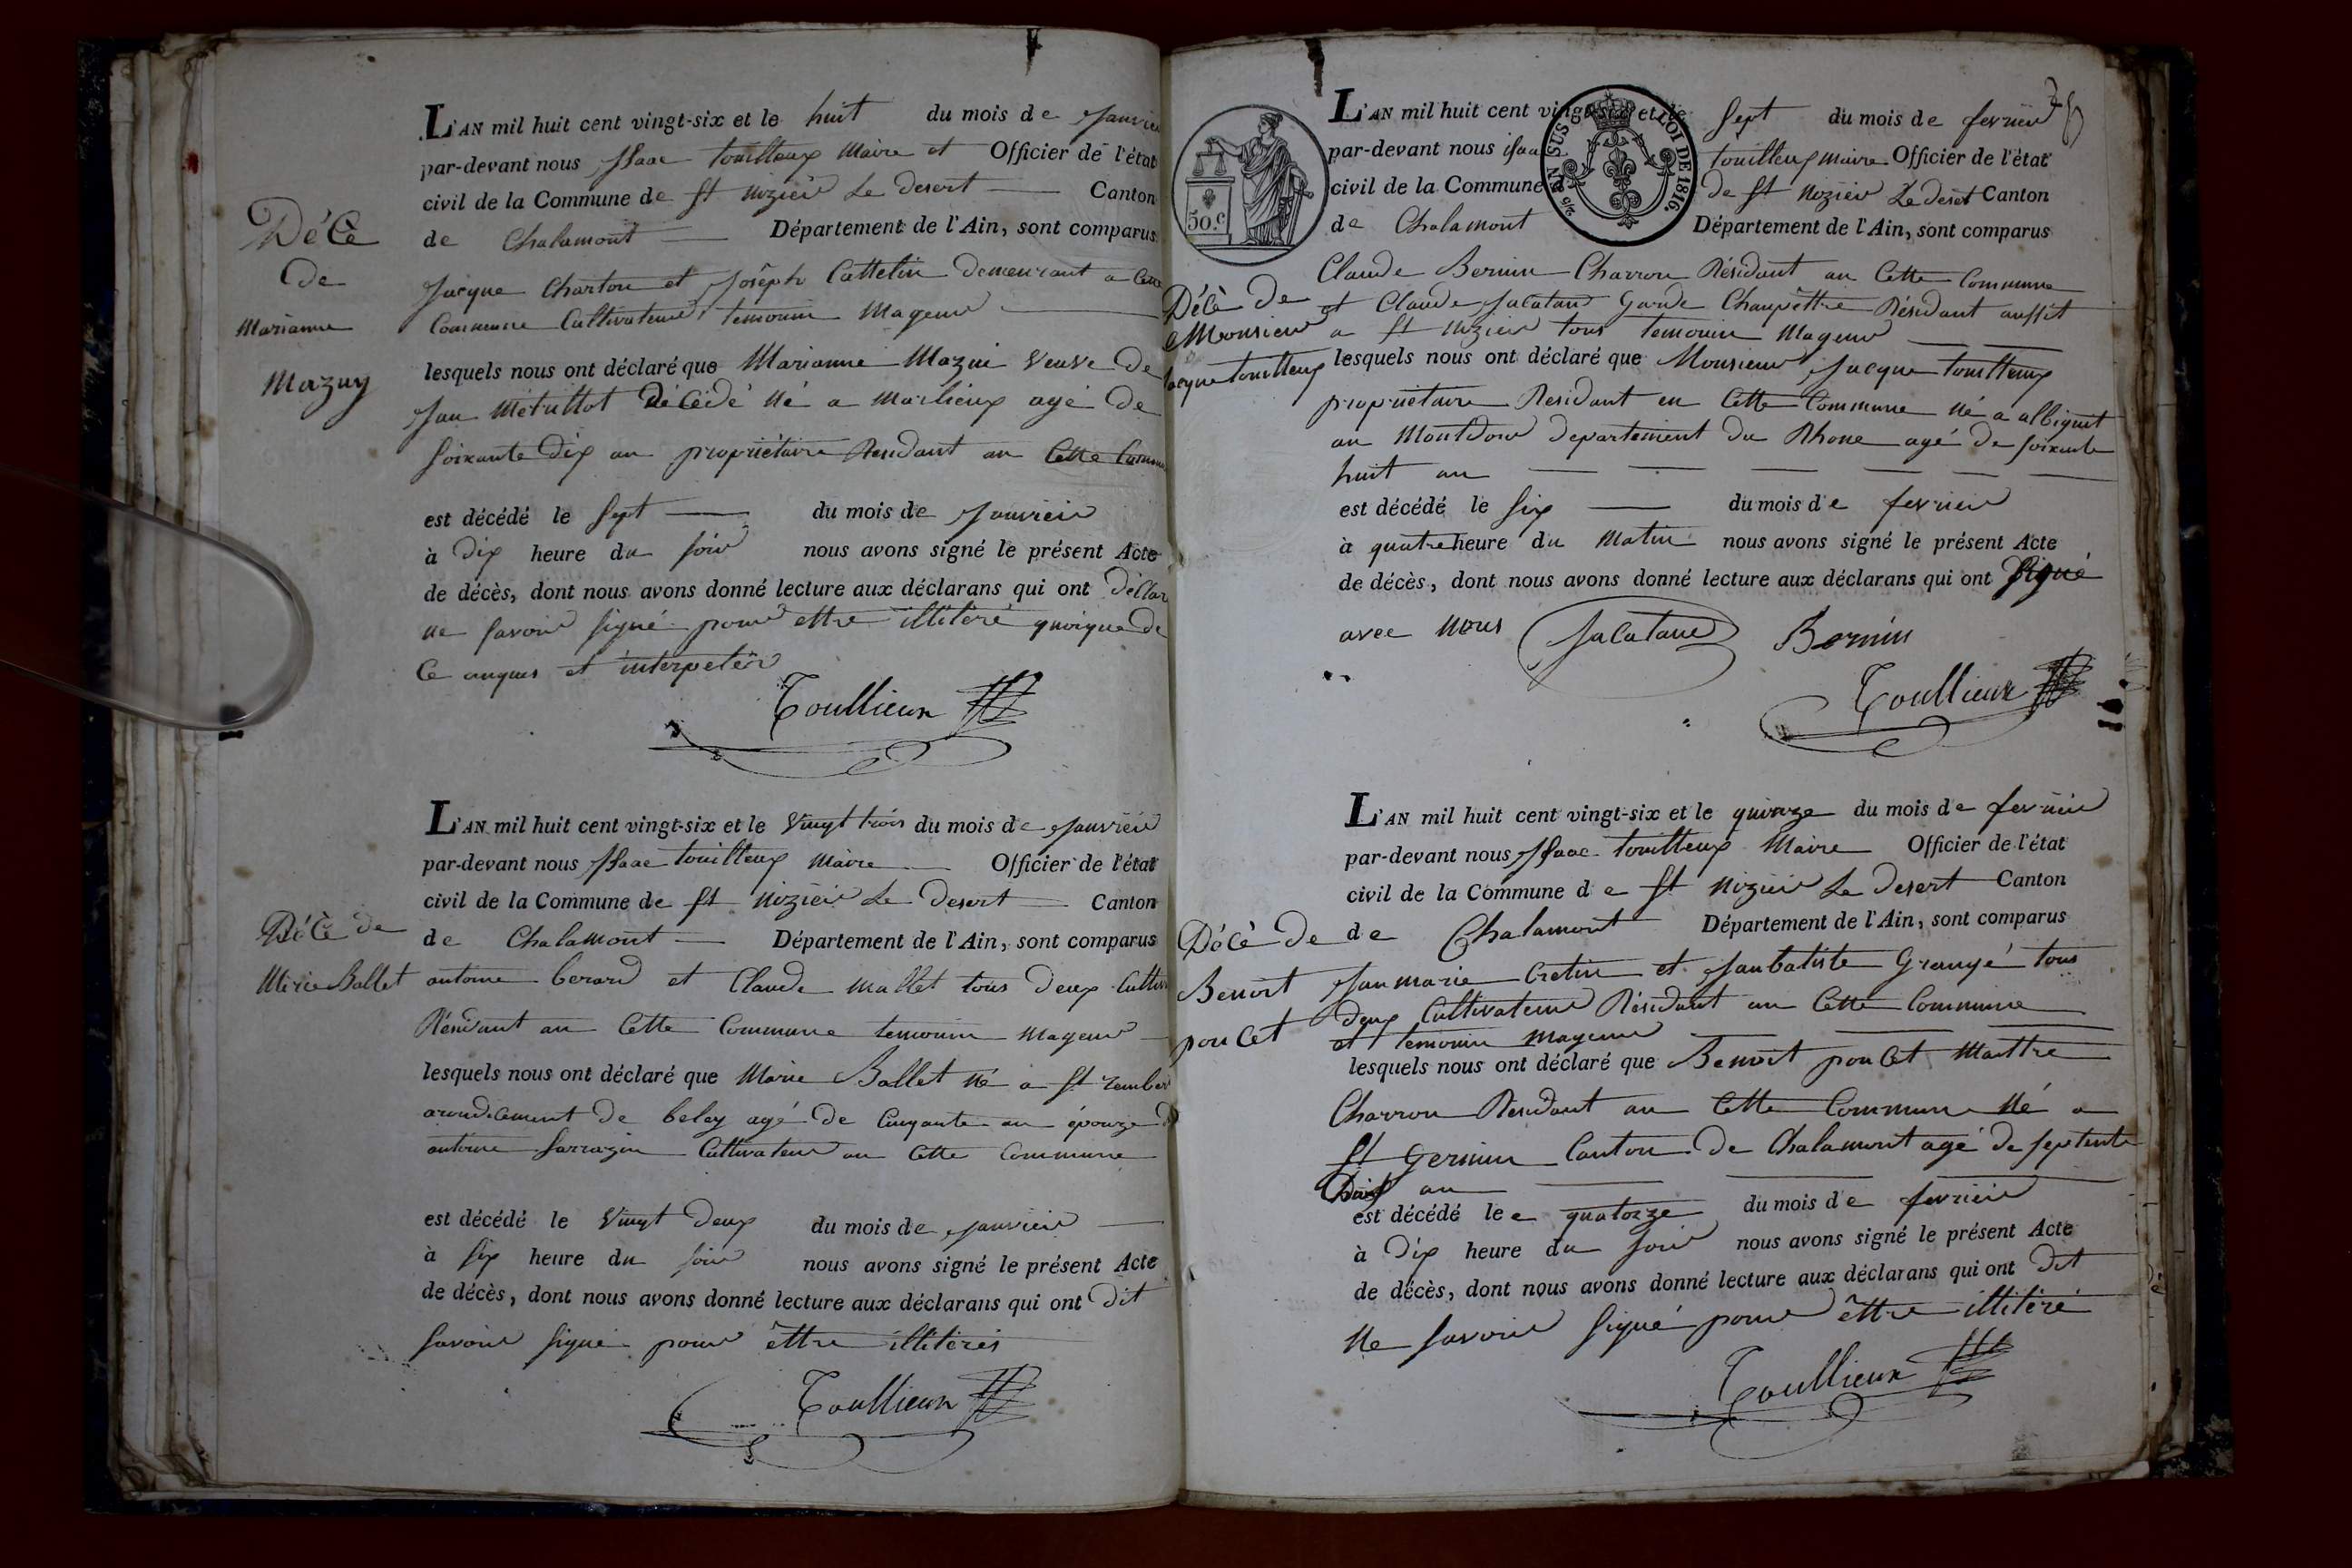 L'AN mil huit cent vingt-six et le huit du mois de Janvier
par-devant nous Isaac touilleux Maire et Officier de l'état
civil de la Commune de St Nizier Le desert Canton
de Chalamont Département de l'Ain, sont comparus
Décè
de
Marianne
Mazuy
Jacque Charton et Joseph Cattelin demeurant a Cette
Commune Cultivateur temouin Mageur
lesquels nous ont déclaré que Marianne Mazui Veuve De
Jan Métrillot Décédé Né a Marlieux agé De
Soixante Dix an propriétaire Résidant an Cette Commune
est décédé le Sept du mois de Janvier
à Dix heure du Soir nous avons signé le présent Acte
de décès, dont nous avons donné lecture aux déclarans qui ont Déllar
ne Savoir Signé pour ettre illitéré quoique de
Ce anquis et interpetér
Toullieux
L'AN mil huit cent vingt-six et le Vingt trois du mois de Janvier
par-devant nous Isaac touilleux Maire Officier de l'état
civil de la Commune de St Nizier Le desert Canton
de Chalamont Département de l'Ain, sont comparus
Décè de
Merie Ballet
antoine berard et Claude Mallet tous Deux Cultiv
Résidant an Cette Commune temouin Mageur
lesquels nous ont déclaré que Marie Ballet Né a St rember
arondicement De beley agé De Cinquante an épouze D
antoine Sarrazin Cultivateur an Cette Commune
est décédé le Vingt Deux du mois de Janvier
à Six heure du Soir nous avons signé le présent Acte
de décès, dont nous avons donné lecture aux déclarans qui ont Dit
Savoir Signé pour êttre illitérés
Toullieux
50.C
EN SUS
LOI DE 1816.
L'AN mil huit cent vingt-six et le Sept du mois de fevrier
par-devant nous isaac touilleux maire Officier de l'état
civil de la Commune de St Nizier Le desert Canton
de Chalamont Département de l'Ain, sont comparus
Décè de
Monsieur
Jacque touilleux
Claude Bernin Charron Résidant an Cette Commune
et Claude Jacatane Garde Champêttre Résidant aussit
a St Nizier tous temouin Mageur
lesquels nous ont déclaré que Monsieur Jacque touilleux
propriétaire Residant en Cette Commune Né a albignit
au Montdor departement Du Rhone agé De Soixante
huit an
est décédé le Six du mois de fevrier
à quatre heure du Matin nous avons signé le présent Acte
de décès, dont nous avons donné lecture aux déclarans qui ont Signé
avec Nous Jacatane Bernin
Toullieux
L'AN mil huit cent vingt-six et le quinze du mois de fevrier
par-devant nous Isaac touilleux Maire Officier de l'état
civil de la Commune de St Nizier Le desert Canton
de Chalamont Département de l'Ain, sont comparus
Décè de
Benoit
poncet
Jan marie Cretin et Janbatiste Grangé tous
Deux Cultivateur Résidant an Cette Commune
et temouin mageur
lesquels nous ont déclaré que Benoit poncet Maittre
Charron Résidant an Cette Commune Né a
St Germin Canton De Chalamont agé De Septente
an
est décédé le quatorze du mois de fevrier
à Dix heure du Soir nous avons signé le présent Acte
de décès, dont nous avons donné lecture aux déclarans qui ont Dit
Ne Savoir Signé pour êttre illitéré
Toullieux